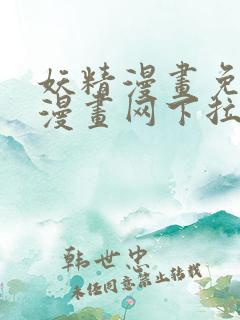 妖精漫畫免
漫畫网下拉
韩世忠
未经同意禁止转载